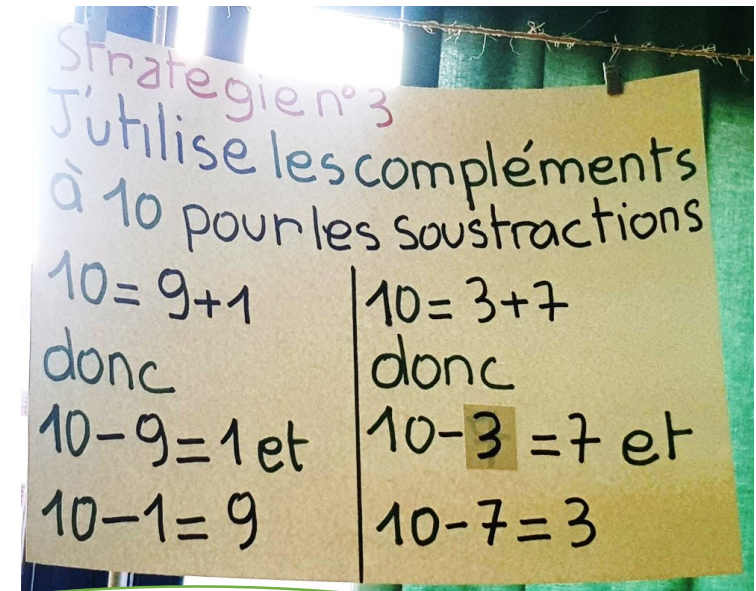 Strategie n° 3
J'utilise les compléments
à 10 pour les soustractions
10 = 9+1
donc
10-9=1 et
10-1= 9
10= 3+7
donc
10-3 =7 et
10-7= 3